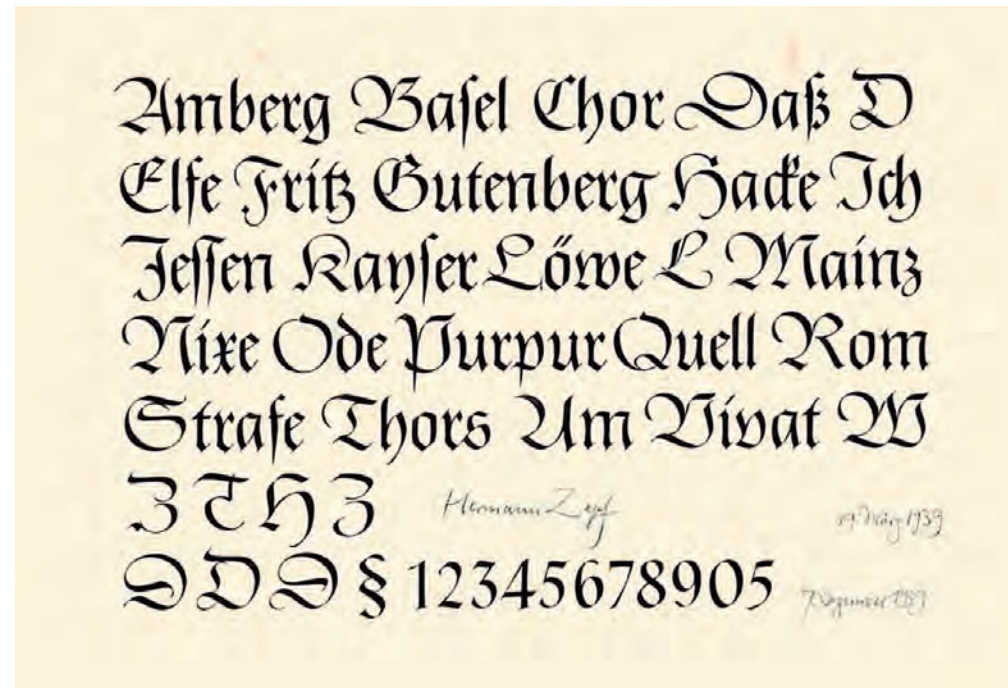 Amberg Baſel Chor Daß D
Elfe Fritz Gutenberg Hacke Ich
Jeſſen Kayſer Löwe L Mainz
Nixe Ode Purpur Quell Rom
Strafe Thors Um Vivat W
Z T H Z Hermann Zapf 19. März 1939
D D D § 12345678905 7. Dezember